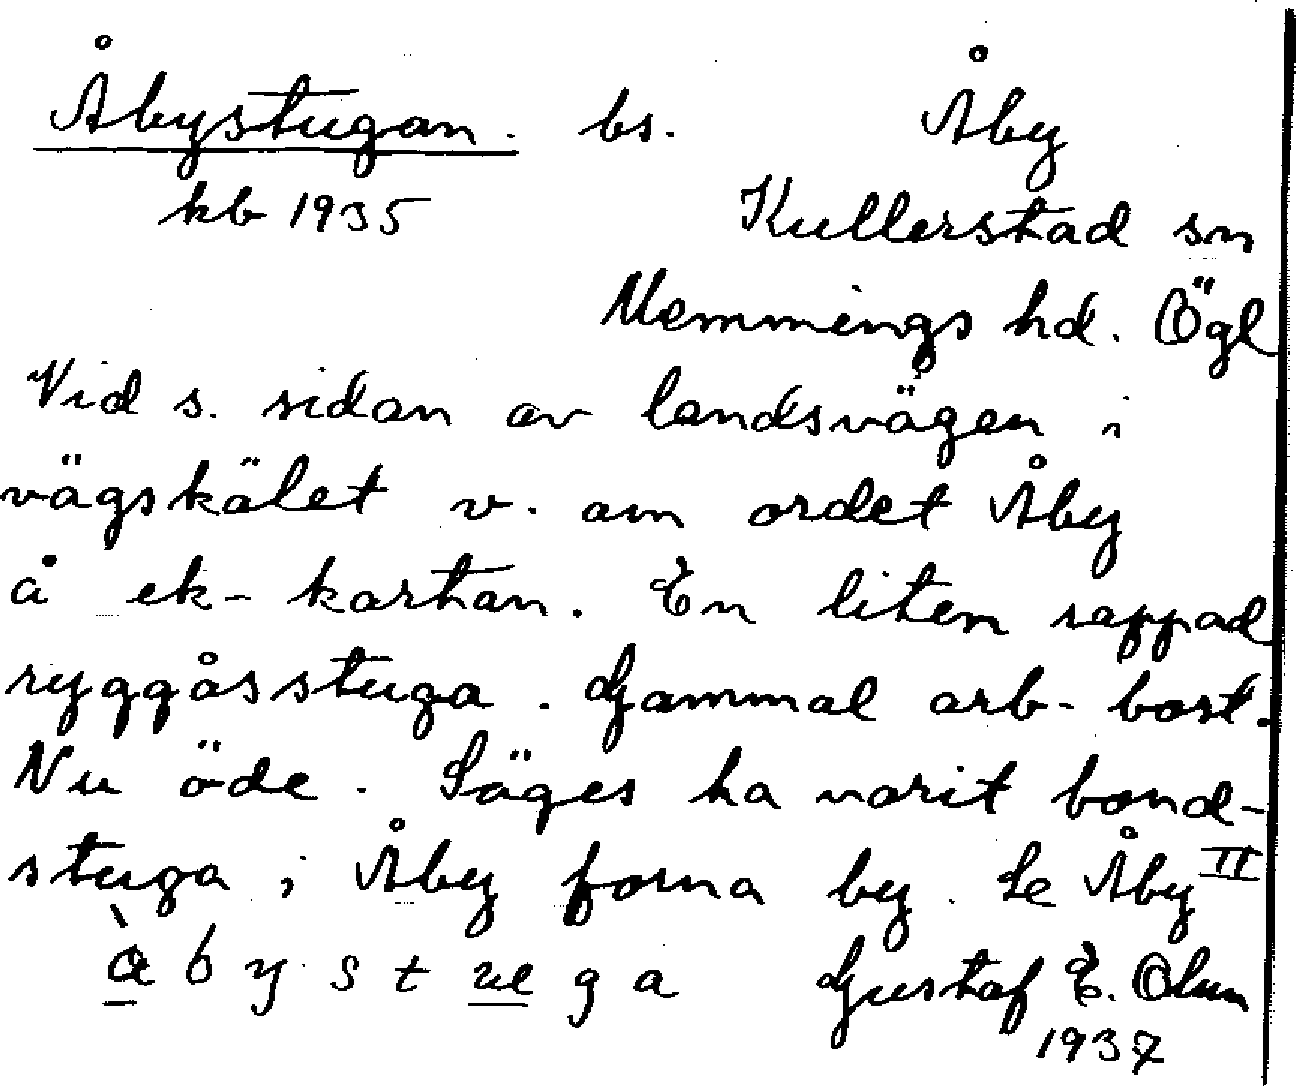 Åbystugan. bs. Åby
kb 1935 Kullerstad sn
Memmings hd. Ögl
Vid s. sidan av landsvägen i
vägskälet v. om ordet Åby
å ek-kartan. En liten rappad
ryggåsstuga. Gammal arb-bost.
Nu öde. Säges ha varit bond-
stuga i Åby forna by. Se Åby II
å b y s t u g a Gustaf E. Olun
1937